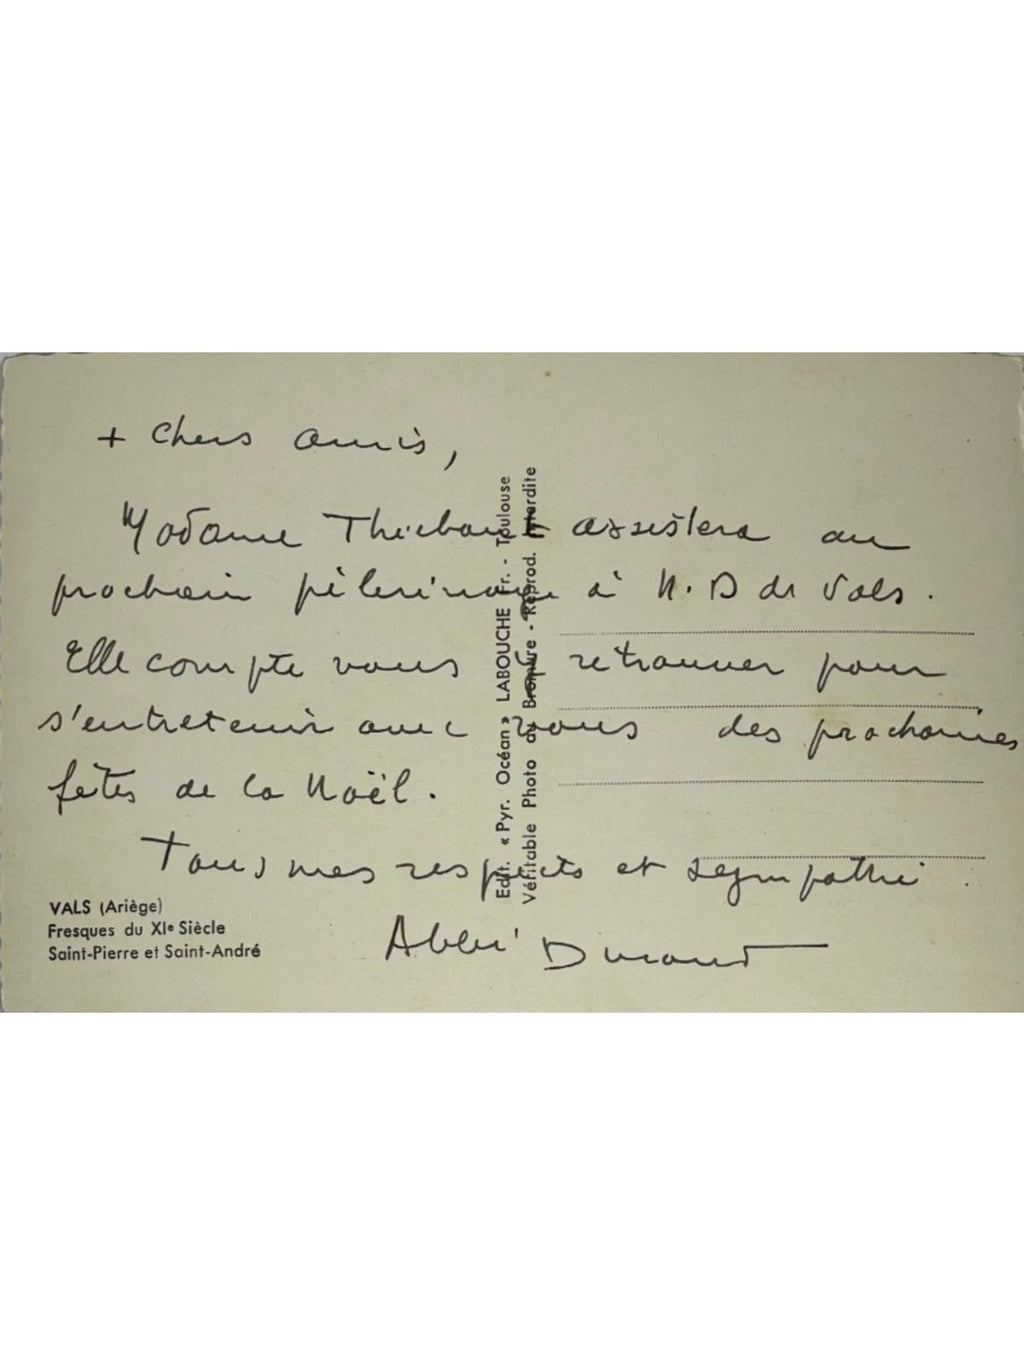 + Chers amis,
Madame Thiebaut assistera au
prochain pèlerinage à N. D de Vals.
Elle compte vous y retrouver pour
s'entretenir avec vous des prochaines
fêtes de la Noël.
Tous mes respects et sympathie.
Abbé Durand
VALS (Ariège)
Fresques du XIe Siècle
Saint-Pierre et Saint-André
Edit. « Pyr. Océan » LABOUCHE Fr. - Toulouse
Véritable Photo au Bromure - Reprod. Interdite